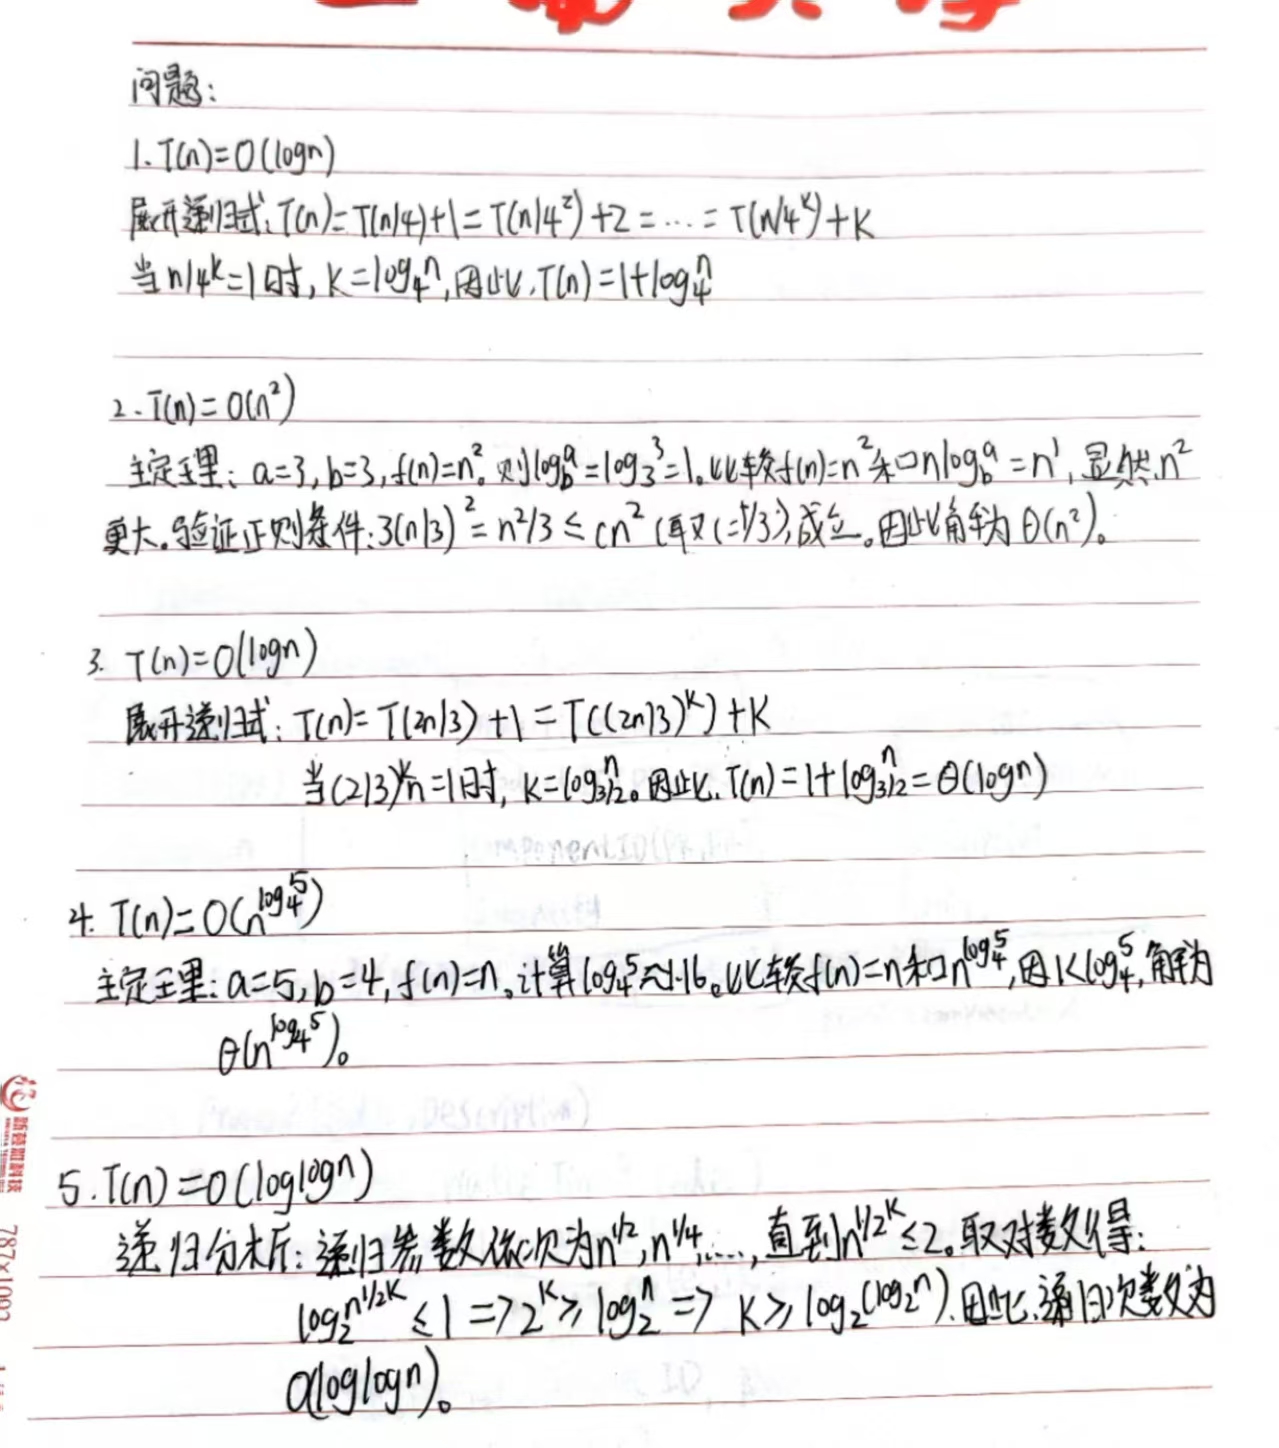 问题:
1. T(n)=O(logn)
展开递归式: T(n)=T(n/4)+1=T(n/4²)+2=…=T(n/4ᵏ)+K
当n/4ᵏ=1时, K=log₄ⁿ, 因此, T(n)=1+log₄ⁿ
2. T(n)=O(n²)
主定理: a=3, b=3, f(n)=n²。则log_b^a=log₃³=1。比较f(n)=n²和nlog_b^a=n¹, 显然n²
更大。验证正则条件: 3(n/3)²=n²/3≤cn²(取c=1/3), 成立。因此解为θ(n²)。
3. T(n)=O(logn)
展开递归式: T(n)=T(2n/3)+1=T((2n/3)ᵏ)+K
当(2/3)ᵏn=1时, K=log_{3/2}^n。因此, T(n)=1+log_{3/2}^n=θ(logn)
4. T(n)=O(n^{log₄⁵})
主定理: a=5, b=4, f(n)=n。计算log₄⁵≈1.16。比较f(n)=n和n^{log₄⁵}, 因1<log₄⁵, 解为
θ(n^{log₄⁵})。
5. T(n)=O(loglogn)
递归分析: 递归参数依次为n^{1/2}, n^{1/4}, ……, 直到n^{1/2^K}≤2。取对数得:
log₂n^{1/2^K}≤1=>2ᴷ≥log₂ⁿ=>K≥log₂(log₂ⁿ). 因此, 递归次数为
O(loglogn)。
787×1092